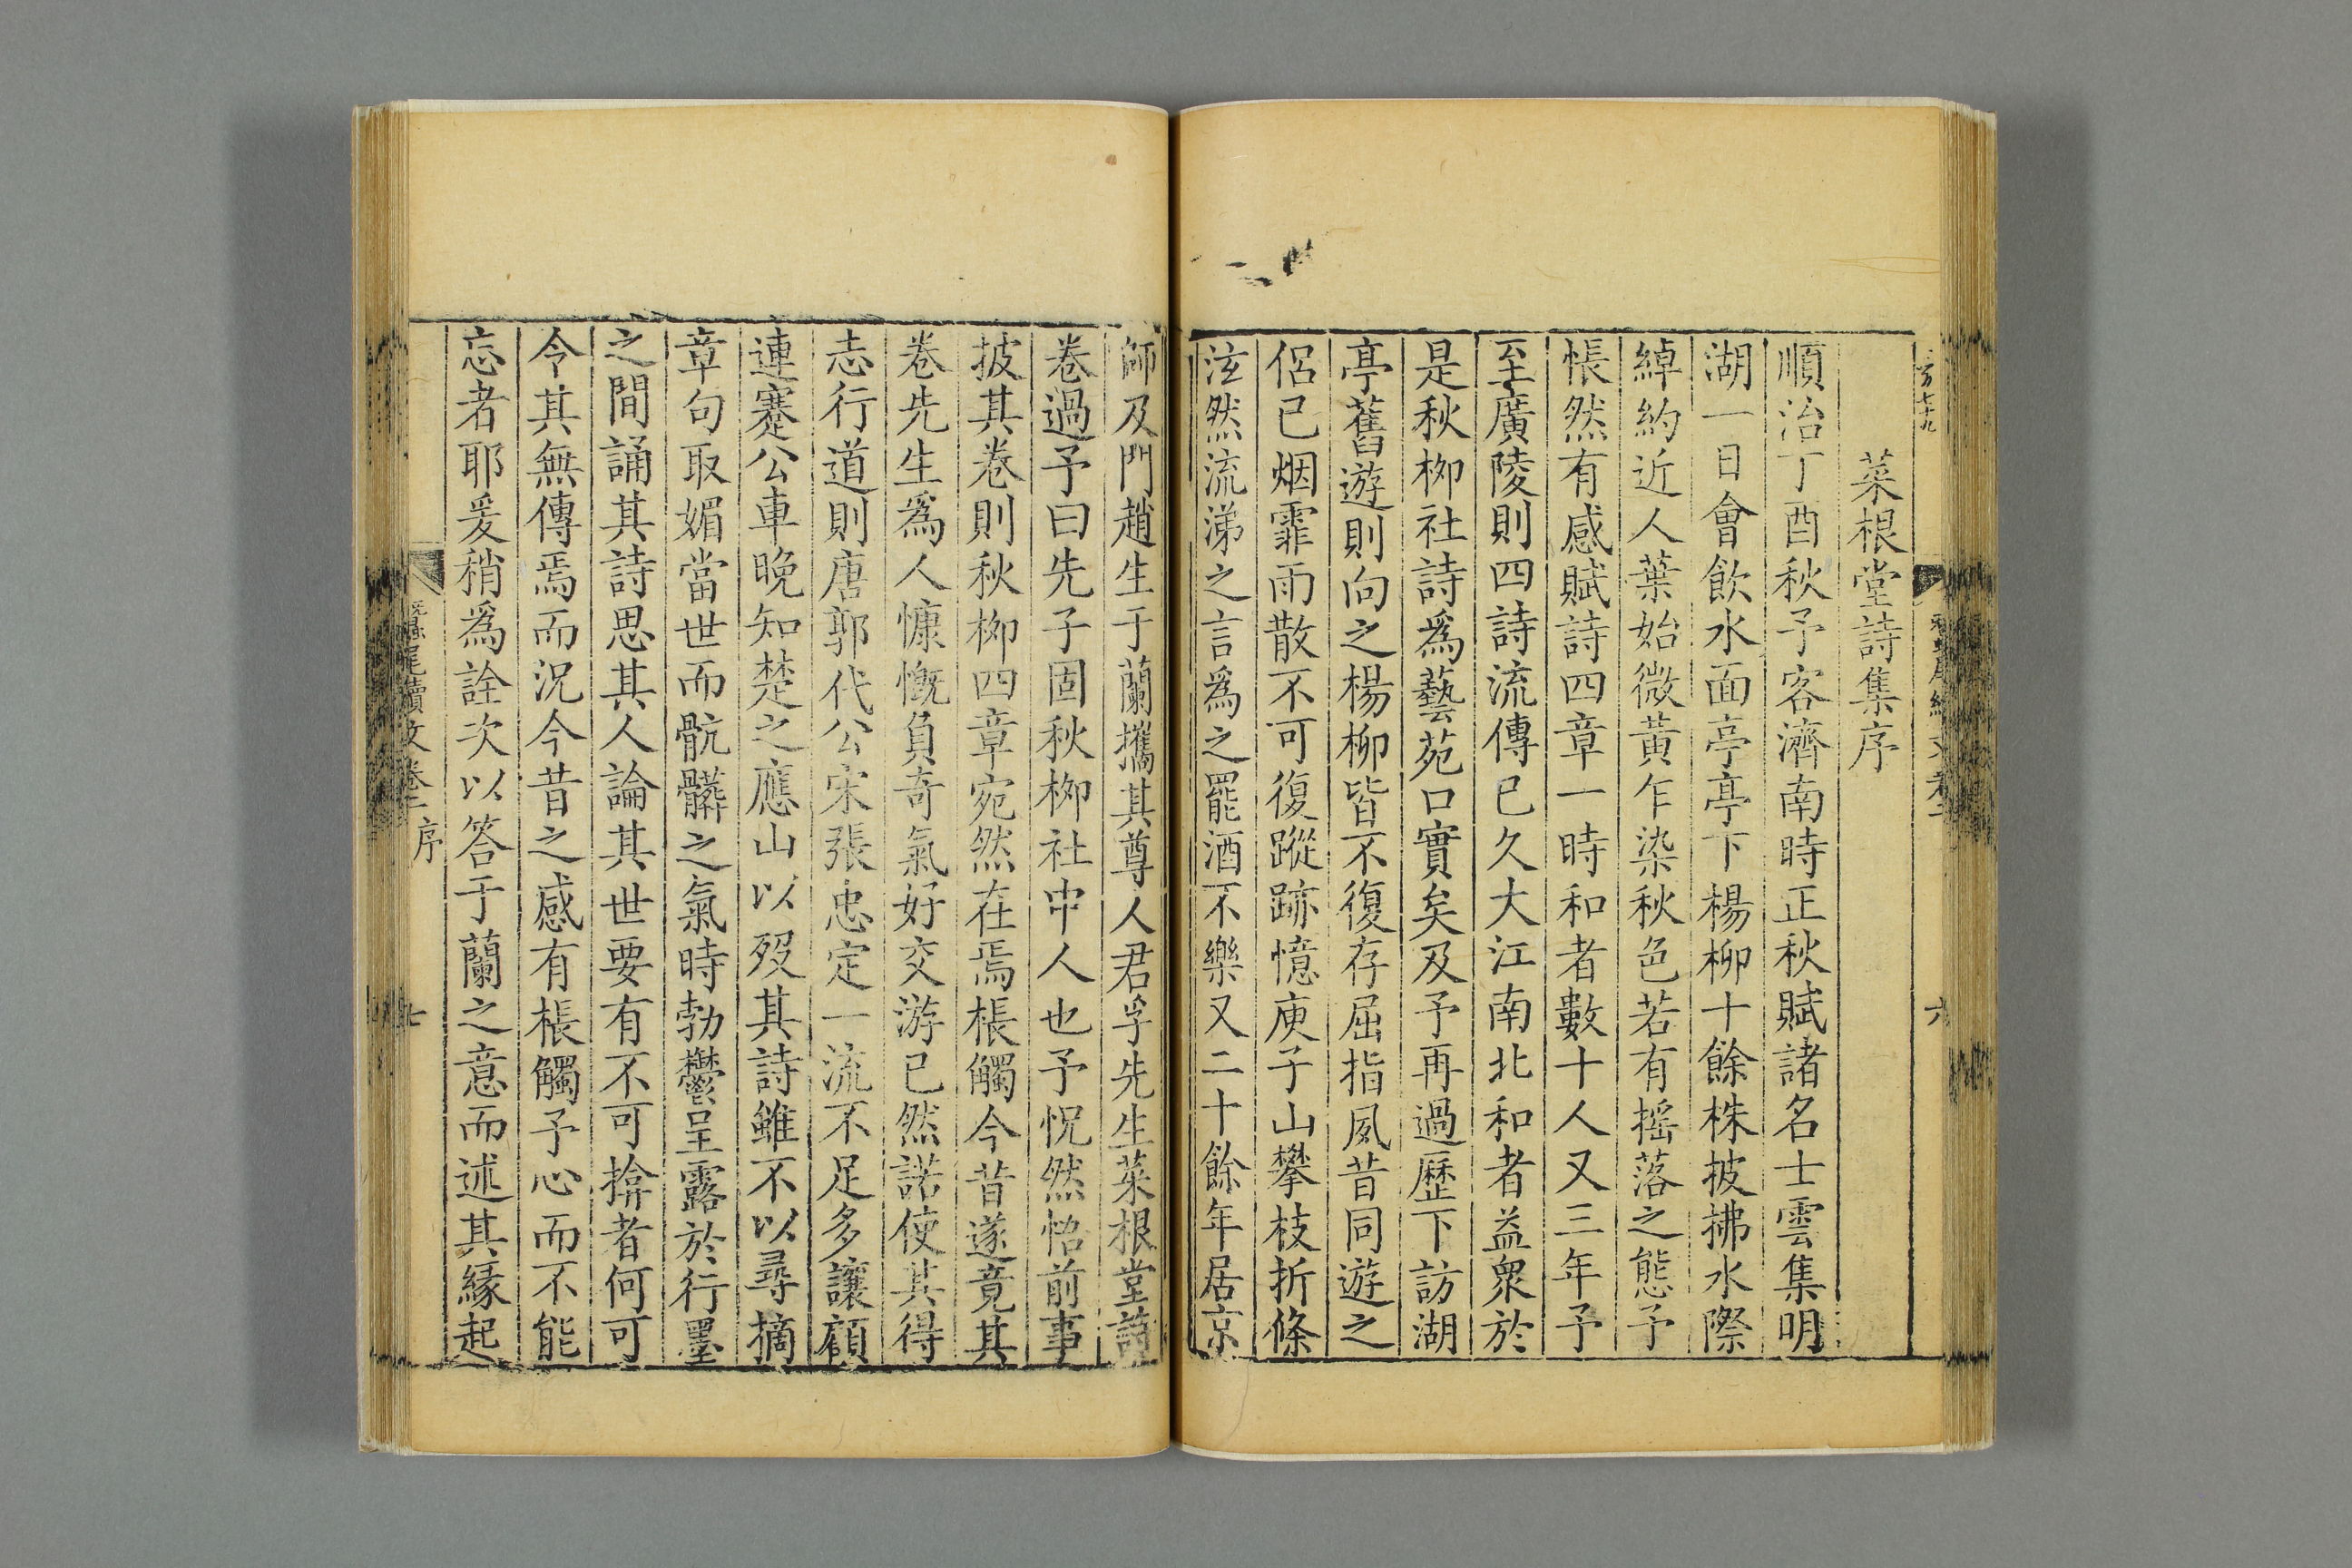 菜根堂詩集序
順治丁酉秋予客濟南時正秋賦諸名士雲集明
湖一日會飲水面亭亭下楊柳十餘株披拂水際
綽約近人葉始微黃乍染秋色若有搖落之態予
悵然有感賦詩四章一時和者數十人又三年予
至廣陵則四詩流傳已久大江南北和者益衆於
是秋柳社詩爲藝苑口實矣及予再過歷下訪湖
亭舊遊則向之楊柳皆不復存屈指夙昔同遊之
侶已烟霏雨散不可復蹤跡憶庾子山攀枝折條
泫然流涕之言爲之罷酒不樂又二十餘年居京
師及門趙生于蘭攜其尊人君孚先生菜根堂詩
卷過予曰先子固秋柳社中人也予怳然悟前事
披其卷則秋柳四章宛然在焉棖觸今昔遂竟其
卷先生爲人慷慨負奇氣好交游已然諾使其得
志行道則唐郭代公宋張忠定一流不足多讓顧
連蹇公車晚知楚之應山以歿其詩雖不以尋摘
章句取媚當世而骯髒之氣時勃鬱呈露於行墨
之間誦其詩思其人論其世要有不可揜者何可
令其無傳焉而況今昔之感有棖觸予心而不能
忘者耶爰稍爲詮次以答于蘭之意而述其緣起
尾續文卷二 序
七
六